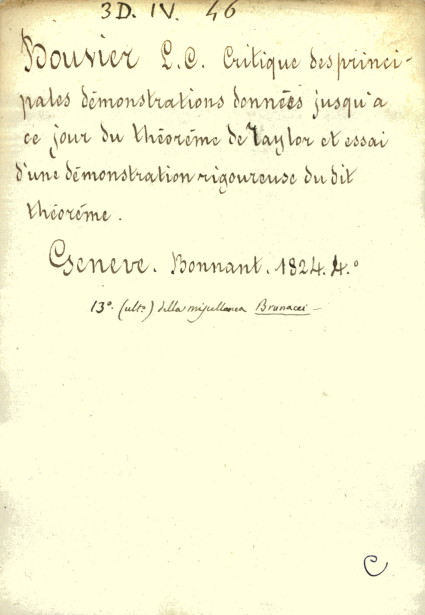 3D. IV. 46
Bouvier L.C. Critique des princi-
pales démonstrations données jusqu'a
ce jour du théoréme de Taylor et essai
d'une démonstration rigoureuse du dit
théoréme.
Geneve. Bonnant. 1824. 4.°
13°. (ult°) della miscellanea Brunacci —
C